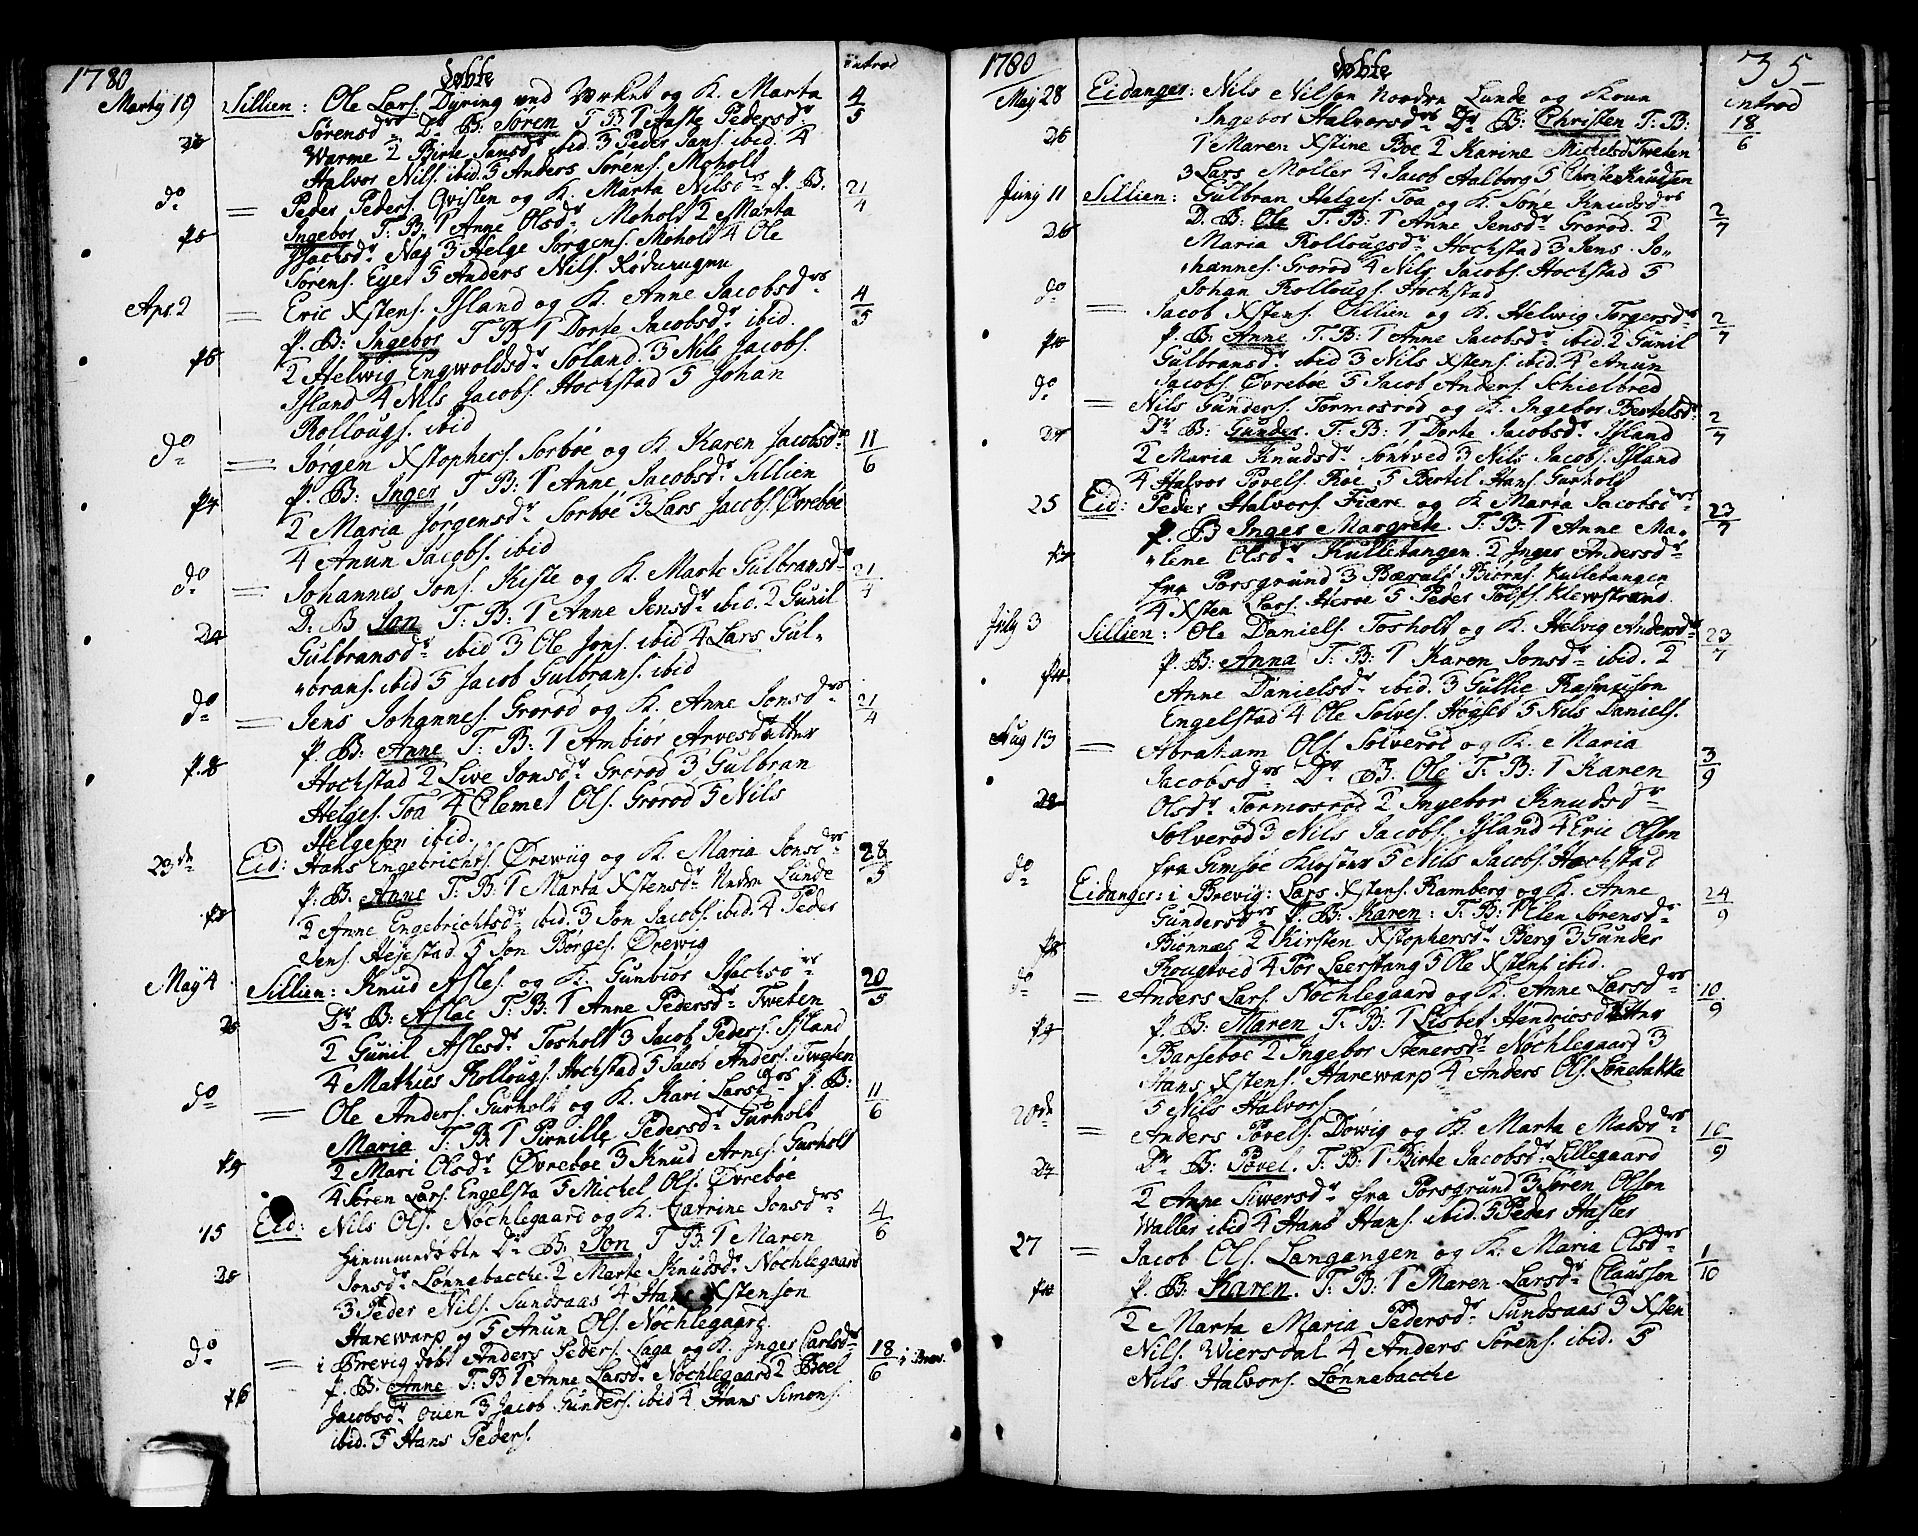 1780
Døbte
introd
Martÿ 19 Sillien: Ole Lars. Dyring ved Vrket og K. Marta 4/5
Sørensdr. Dr B: Søren T B 1 Aaste Pedersdr.
Warme 2 Birte Jansdr ibid 3 Peder Jans. ibid. 4
Halvor Nils. ibid. 5 Anders Sørens. Moholt
do = Peder Peders. Qvisten og K. Marta Nilsdrs P. B. 21/4
Ingebor T: B: 1 Anne Olsdr. Moholt 2 Marta
Isachsdr Nag 3 Helge Jørgens. Moholt 4 Ole
Sørens. Eyer 5 Anders Nils.
Apr. 2 = Eric Xstens. Island og K. Anne Jacobsdrs 4/5
P. B: Ingebor T B 1 Dorte Jacobsdr ibid.
2 Helwig Engwoldsdr Soland. 3 Nils Jacobs.
Island 4 Nils Jacobs. Hochstad 5 Johan
Rollougs. ibid
do = Jørgen Xstophers. Sorbøe og K. Karen Jacobsdr 11/6
P. B: Inger T B: 1 Anne Jacobsdr Sillien
2 Maria Jørgensdr Sorbøe 3 Lars Jacobs. Øvrebøe
4 Anun Jacobs. ibid
do = Johannes Jons. Kiste og K. Marte Gulbransdr 21/4
D. B Jon T: B: 1 Anne Jensdr ibid. 2 Gunil
Gulbransdr ibid 3 Ole Jons. ibid 4 Lars Gul-
brans. ibid 5 Jacob Gulbrans. ibid
do = Jens Johannes. Grorød og K. Anne Jonsdrs 21/4
P. B: Anne T: B: 1 Ambiør Arvesdatter
Hochstad 2 Live Jonsdr Grorød 3 Gulbran
Helges. Toa 4 Clemet Ols. Grorød 5 Nils
Helgesøn ibid.
23de Eid: Hans Engebrichts. Ørewiig og K. Maria Jonsdrs 28/5
P. B. Anne T: B: 1 Marta Xstensdr Nedre Lunde
2 Anne Engebrichtsdr ibid. 3 Jon Jacobs. ibid. 4 Peder
Jens. Aslestad 5 Jon Børges. Ørewig
Maÿ 4 Sillien: Knud Asles. og K. Gunbiør Isachsdrs 20/5
Dr B: Aslac T: B: 1 Anne Pedersdr Tweten
2 Gunil Aslesdr Tosholt 3 Jacob Peders. Island
4 Mathies Rollougs. Hochstad 5 Jacob Anders. Tweten
do = Ole Anders. Gurholt og K. Kari Larsdrs P. B: 11/6
Maria T. B: 1 Pirnille Pedersdr Gurholt
2 Mari Olsdr Øvrebøe 3 Knud Arnes. Gurholt
4 Søren Lars. Engelsta 5 Michel Ols. Øvrebøe
15 Eid: Nils Ols. Nøchlegaard og K. Catrine Jonsdrs 4/6
hiemmedøbte Dr B. Jon T B 1 Maren
Jonsdr Lønnebacche. 2 Marte Knudsdr Nøchlegaard
3 Peder Nils. Sundsaas 4 Hans Xstenson
Harewarp og 5 Anun Ols. Nøchlegaard.
do = i Brevig døbt Anders Peders. Saga og K. Inger Carlsdr 18/6 i Brev.
P. B. Anne T: B 1 Anne Larsdr Nøchlegaard 2 Boel
Jacobsdr Ouen 3 Jacob Gunders. ibid 4 Hans Simons.
ibid. 5 Hans Peders.
1780
Døbte
35
introd
Maÿ 28 Eidanger: Nils Nilsøn Nordre Lunde og Kone 18/6
Ingebor Halvorsdrs Dr B: Christen T: B:
1 Maren Xstine Boe 2 Karine Michelsdr Tweten
3 Lars Møller 4 Jacob Aalborg 5 Christen Knudsen
Junj 11 Sillien: Gulbran Helges. Toa og K. Sone Knudsdrs 2/7
D. B: Ole T. B: 1 Anne Jensdr Grorød. 2
Maria Rollougsdr Hochstad 3 Jens Jo-
hannes. Grorød 4 Nils Jacobs. Hochstad 5
Johan Rollougs. Hochstad
do = Jacob Xstens. Sillien og K. Helwig Torgersdrs 2/7
P. B: Anne T. B: 1 Anne Jacobsdr ibid 2 Gunil
Gulbransdr ibid 3 Nils Xstens. ibid. 4 Anun
Jacobs. Øvrebøe 5 Jacob Anders. Schielbred
do = Nils Gunders. Tormosrød og K. Ingebor Bertelsdr 2/7
Dr B: Gunder T: B: 1 Dorte Jacobsdr Island
2 Maria Knudsdr Sontved 3 Nils Jacobs. Island
4 Halvor Povels. Roe 5 Bertil Hans. Gurholt
25 Eid: Peder Halvors. Fiære og K Maria Jacobsdrs 23/7
P. B Inger Margrete. T. B: 1 Anne Ma-
lene Olsdr Kullebangen. 2 Inger Andersdr
fra Porsgrund 3 Bærulf Biørns. Kullebangen
4 Xsten Lars. Herøe 5 Peder Tolfs. Klewstrand
Julÿ 3 Sillien: Ole Daniels. Tosholt og K. Helvig Andersdr 23/7
P. B: Anna T. B: 1 Karen Jonsdr ibid. 2
Anne Danielsdr ibid. 3 Gullie Rasmusøn
Engelstad 4 Ole Sølves. Høgset 5 Nils Daniels.
Aug 13 = Abraham Ols. Solverød og K. Maria 3/9
Jacobsdrs Dr B. Ole T. B: 1 Karen
Olsdr Tormosrød 2 Ingebor Knudsdr
Solverød 3 Nils Jacobs. Island 4 Eric Olsøn
fra Gimsøe Kloster 5 Nils Jacobs. Hochstad
do Eidanger: i Brevig: Lars Xstens. Ramberg og K. Anne 24/9
Gundersdrs P. B: Karen: T: B: 1 Elen Sørensdr
Biønnes 2 Kirsten Xstophersdr Berg 3 Gunder
Rougtved 4 Tor Leerstang 5 Ole Xstens. ibid.
do = Anders Lars. Nøchlegaard og K. Anne Larsdrs 10/9
P. B: Maren T. B: 1 Lisbet Hendricsdatter
Barseboe 2 Ingebor Stenersdr Nøchlegaard 3
Hans Xstens. Harewarp 4 Anders Ols. Lønebakke
5 Nils Halvors.
20de = Anders Povels. Dowig og K. Marta Madsdrs 10/9
Dr B: Povel. T: B: 1 Birte Jacobsdr Lillegaard
2 Anne Siwersdr fra Porsgrund 3 Søren Olsøn
Waller ibid 4 Hans Hans. ibid. 5 Peder Hasler
27 = Jacob Ols. Langangen og K. Maria Olsdrs 1/10
P. B: Karen. T: B: 1 Maren Larsdr Clausson
2 Marta Maria Pedersdr Sundsaas 3 Xsten
Nils. Wiersdal 4 Anders Sørens. ibid. 5
Nils Halvors. Lønnebacche